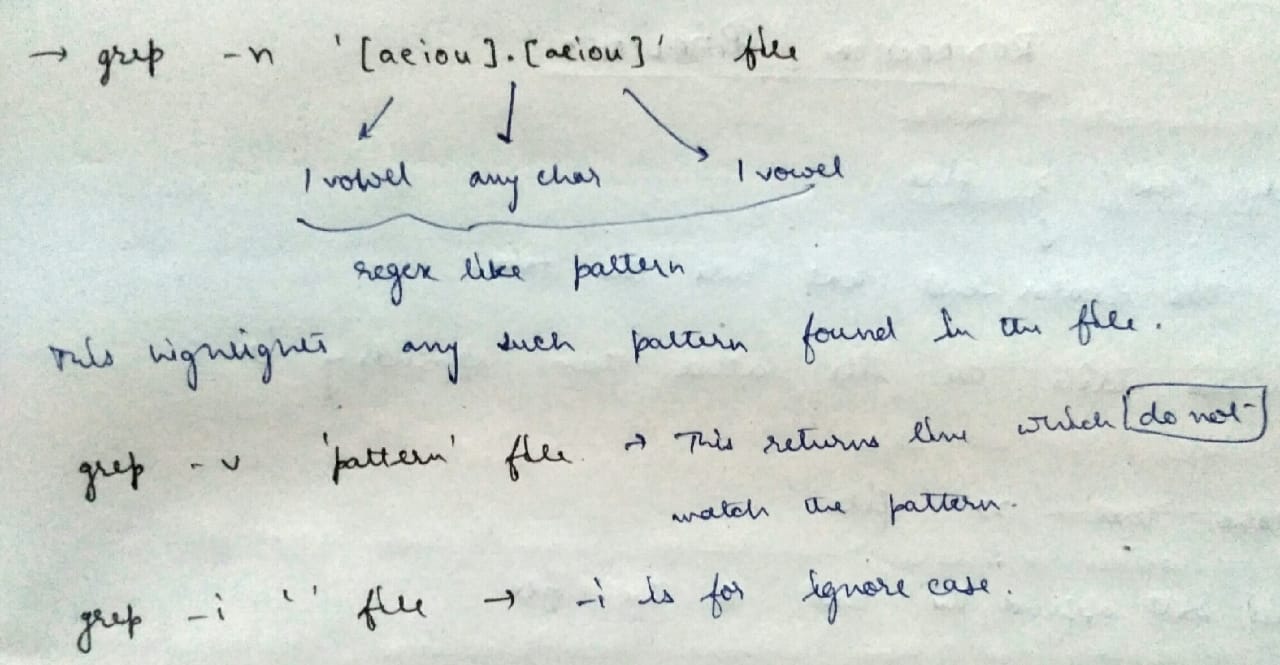 → grep -n '[aeiou].[aeiou]' file
1 vowel any char 1 vowel
regex like pattern
This highlights any such pattern found in the file.
grep -v 'pattern' file → This returns line which do not
match the pattern.
grep -i ' ' file → -i is for ignore case.